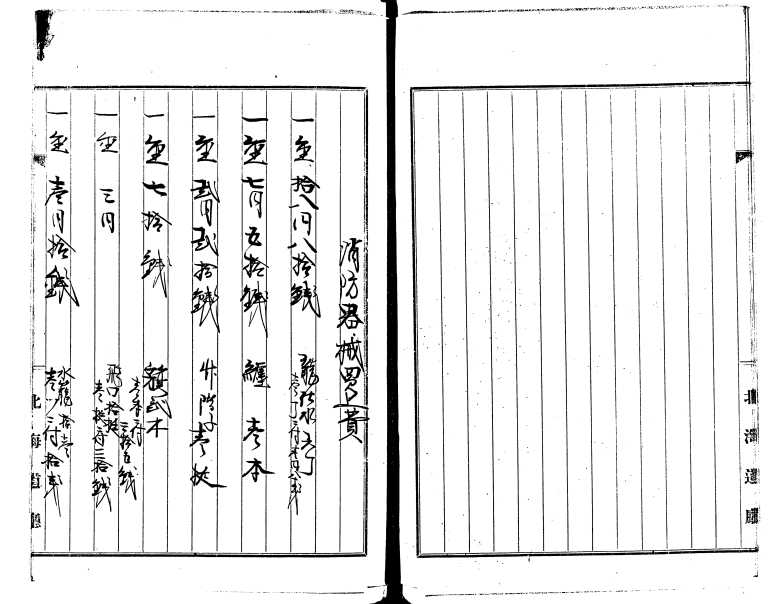 北海道廳
消防器械買費
一金拾八円八拾銭
龍吐水壱丁
一金七円五拾銭
纏壱本
一金弐円弐拾銭
階子壱挺
一金七拾銭
弐本
壱本ニ付
三拾五銭
一金三円
拾挺
壱挺ニ付三拾銭
一金壱円拾銭
水籠拾壱
壱ツニ付拾
北海道廳